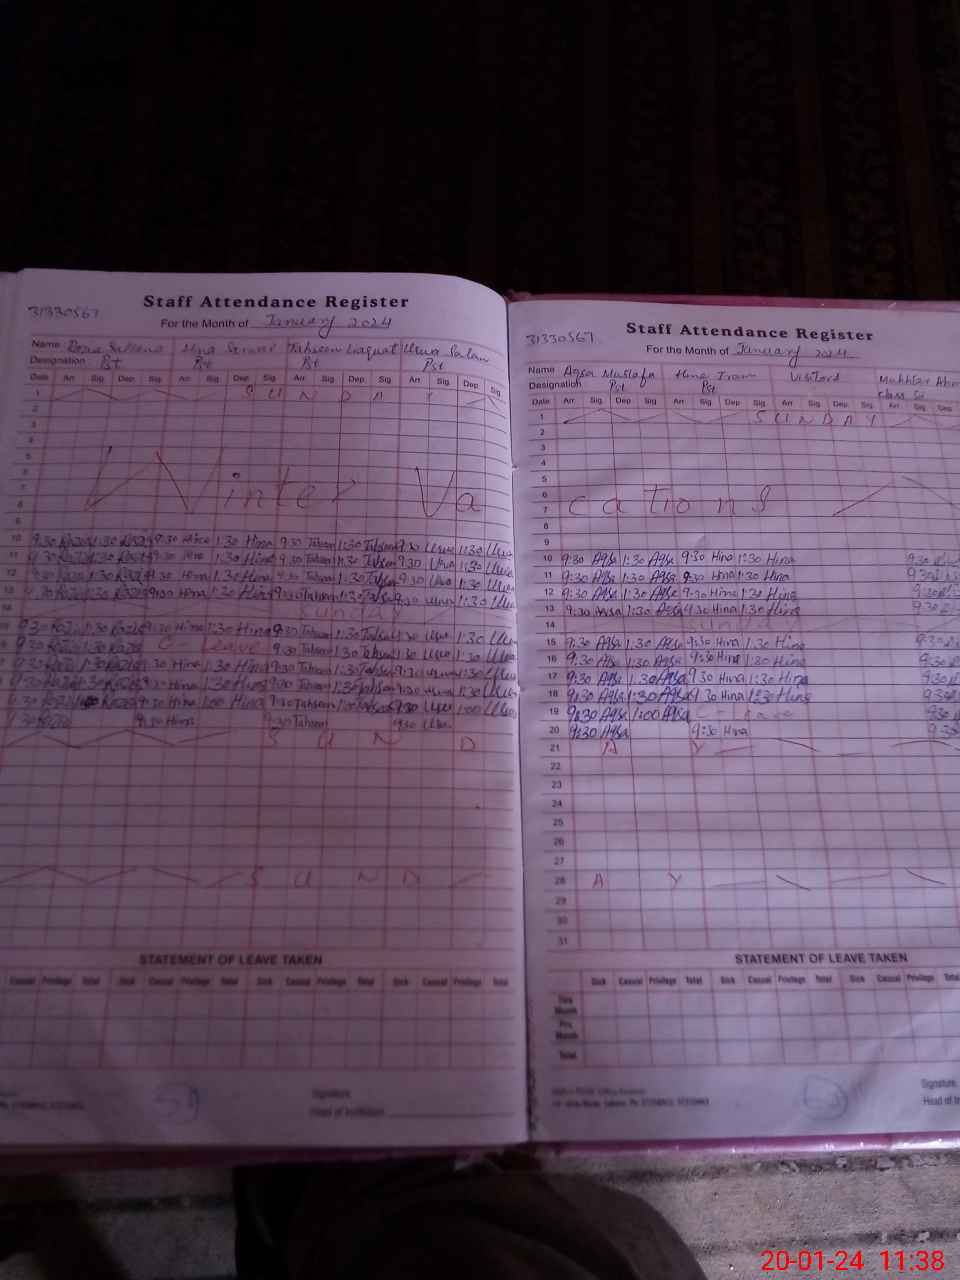 31330567
Staff Attendance Register
For the Month of January 2024
Name Tahseen Liaquat Urwa Salam
Designation Pst Pst Pst Pst
Date Arr Sig Dep Sig Arr Sig Dep Sig Arr Sig Dep Sig Arr Sig Dep Sig
1 S U N D A Y
2
3
4
5
6
7 Winter Va
8
9
10 9:30 Razia 1:30 Razia 9:30 Hina 1:30 Hina 9:30 Tahseen 1:30 Tahseen 9:30 Urwa 1:30 Urwa
11 9:30 Razia 1:30 Razia 9:30 Hina 1:30 Hina 9:30 Tahseen 1:30 Tahseen 9:30 Urwa 1:30 Urwa
12 9:30 Razia 1:30 Razia 9:30 Hina 1:30 Hina 9:30 Tahseen 1:30 Tahseen 9:30 Urwa 1:30 Urwa
13 9:30 Razia 1:30 Razia 9:30 Hina 1:30 Hina 9:30 Tahseen 1:30 Tahseen 9:30 Urwa 1:30 Urwa
14 Sunday
9:30 Razia 1:30 Razia 9:30 Hina 1:30 Hina 9:30 Tahseen 1:30 Tahseen 9:30 Urwa 1:30 Urwa
9:30 Razia 1:30 Razia C Leave 9:30 Tahseen 1:30 Tahseen 9:30 Urwa 1:30 Urwa
9:30 Razia 1:30 Razia 9:30 Hina 1:30 Hina 9:30 Tahseen 1:30 Tahseen 9:30 Urwa 1:30 Urwa
9:30 Razia 1:30 Razia 9:30 Hina 1:30 Hina 9:30 Tahseen 1:30 Tahseen 9:30 Urwa 1:30 Urwa
9:30 Razia Razia 9:30 Hina 1:00 Hina 9:30 Tahseen 1:00 Tahseen 9:30 Urwa 1:00 Urwa
9:30 Razia 9:30 Hina 9:30 Tahseen 9:30 Urwa
S U N D
S U N D
STATEMENT OF LEAVE TAKEN
Casual Privilege Total Sick Casual Privilege Total Sick Casual Privilege Total Sick Casual Privilege Total
Signature
Head of Institution
31330567
Staff Attendance Register
For the Month of January 2024
Name Aqsa Mustafa Hina Iram Visitors Mukhtar
Designation Pst Pst class
Date Arr Sig Dep Sig Arr Sig Dep Sig Arr Sig Dep Sig Arr Sig Dep
1 S U N D A Y
2
3
4
5
6
7 cations
8
9
10 9:30 Aqsa 1:30 Aqsa 9:30 Hina 1:30 Hina 9:30
11 9:30 Aqsa 1:30 Aqsa 9:30 Hina 1:30 Hina 9:30
12 9:30 Aqsa 1:30 Aqsa 9:30 Hina 1:30 Hina 9:30
13 9:30 Aqsa 1:30 Aqsa 9:30 Hina 1:30 Hina 9:30
14 Sunday
15 9:30 Aqsa 1:30 Aqsa 9:30 Hina 1:30 Hina 9:30
16 9:30 Aqsa 1:30 Aqsa 9:30 Hina 1:30 Hina 9:30
17 9:30 Aqsa 1:30 Aqsa 9:30 Hina 1:30 Hina 9:30
18 9:30 Aqsa 1:30 Aqsa 9:30 Hina 1:30 Hina 9:30
19 9:30 Aqsa 1:00 Aqsa C - Leave 9:30
20 9:30 Aqsa 9:30 Hina 9:30
21 A Y
22
23
24
25
26
27
28 A Y
29
30
31
STATEMENT OF LEAVE TAKEN
Sick Casual Privilege Total Sick Casual Privilege Total Sick Casual Privilege Total
This Month
Pre. Month
Total
Signature
Head of
20-01-24 11:38